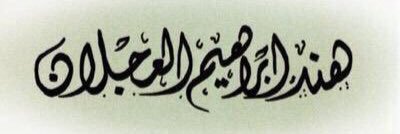 هند ابراهيم العجلان